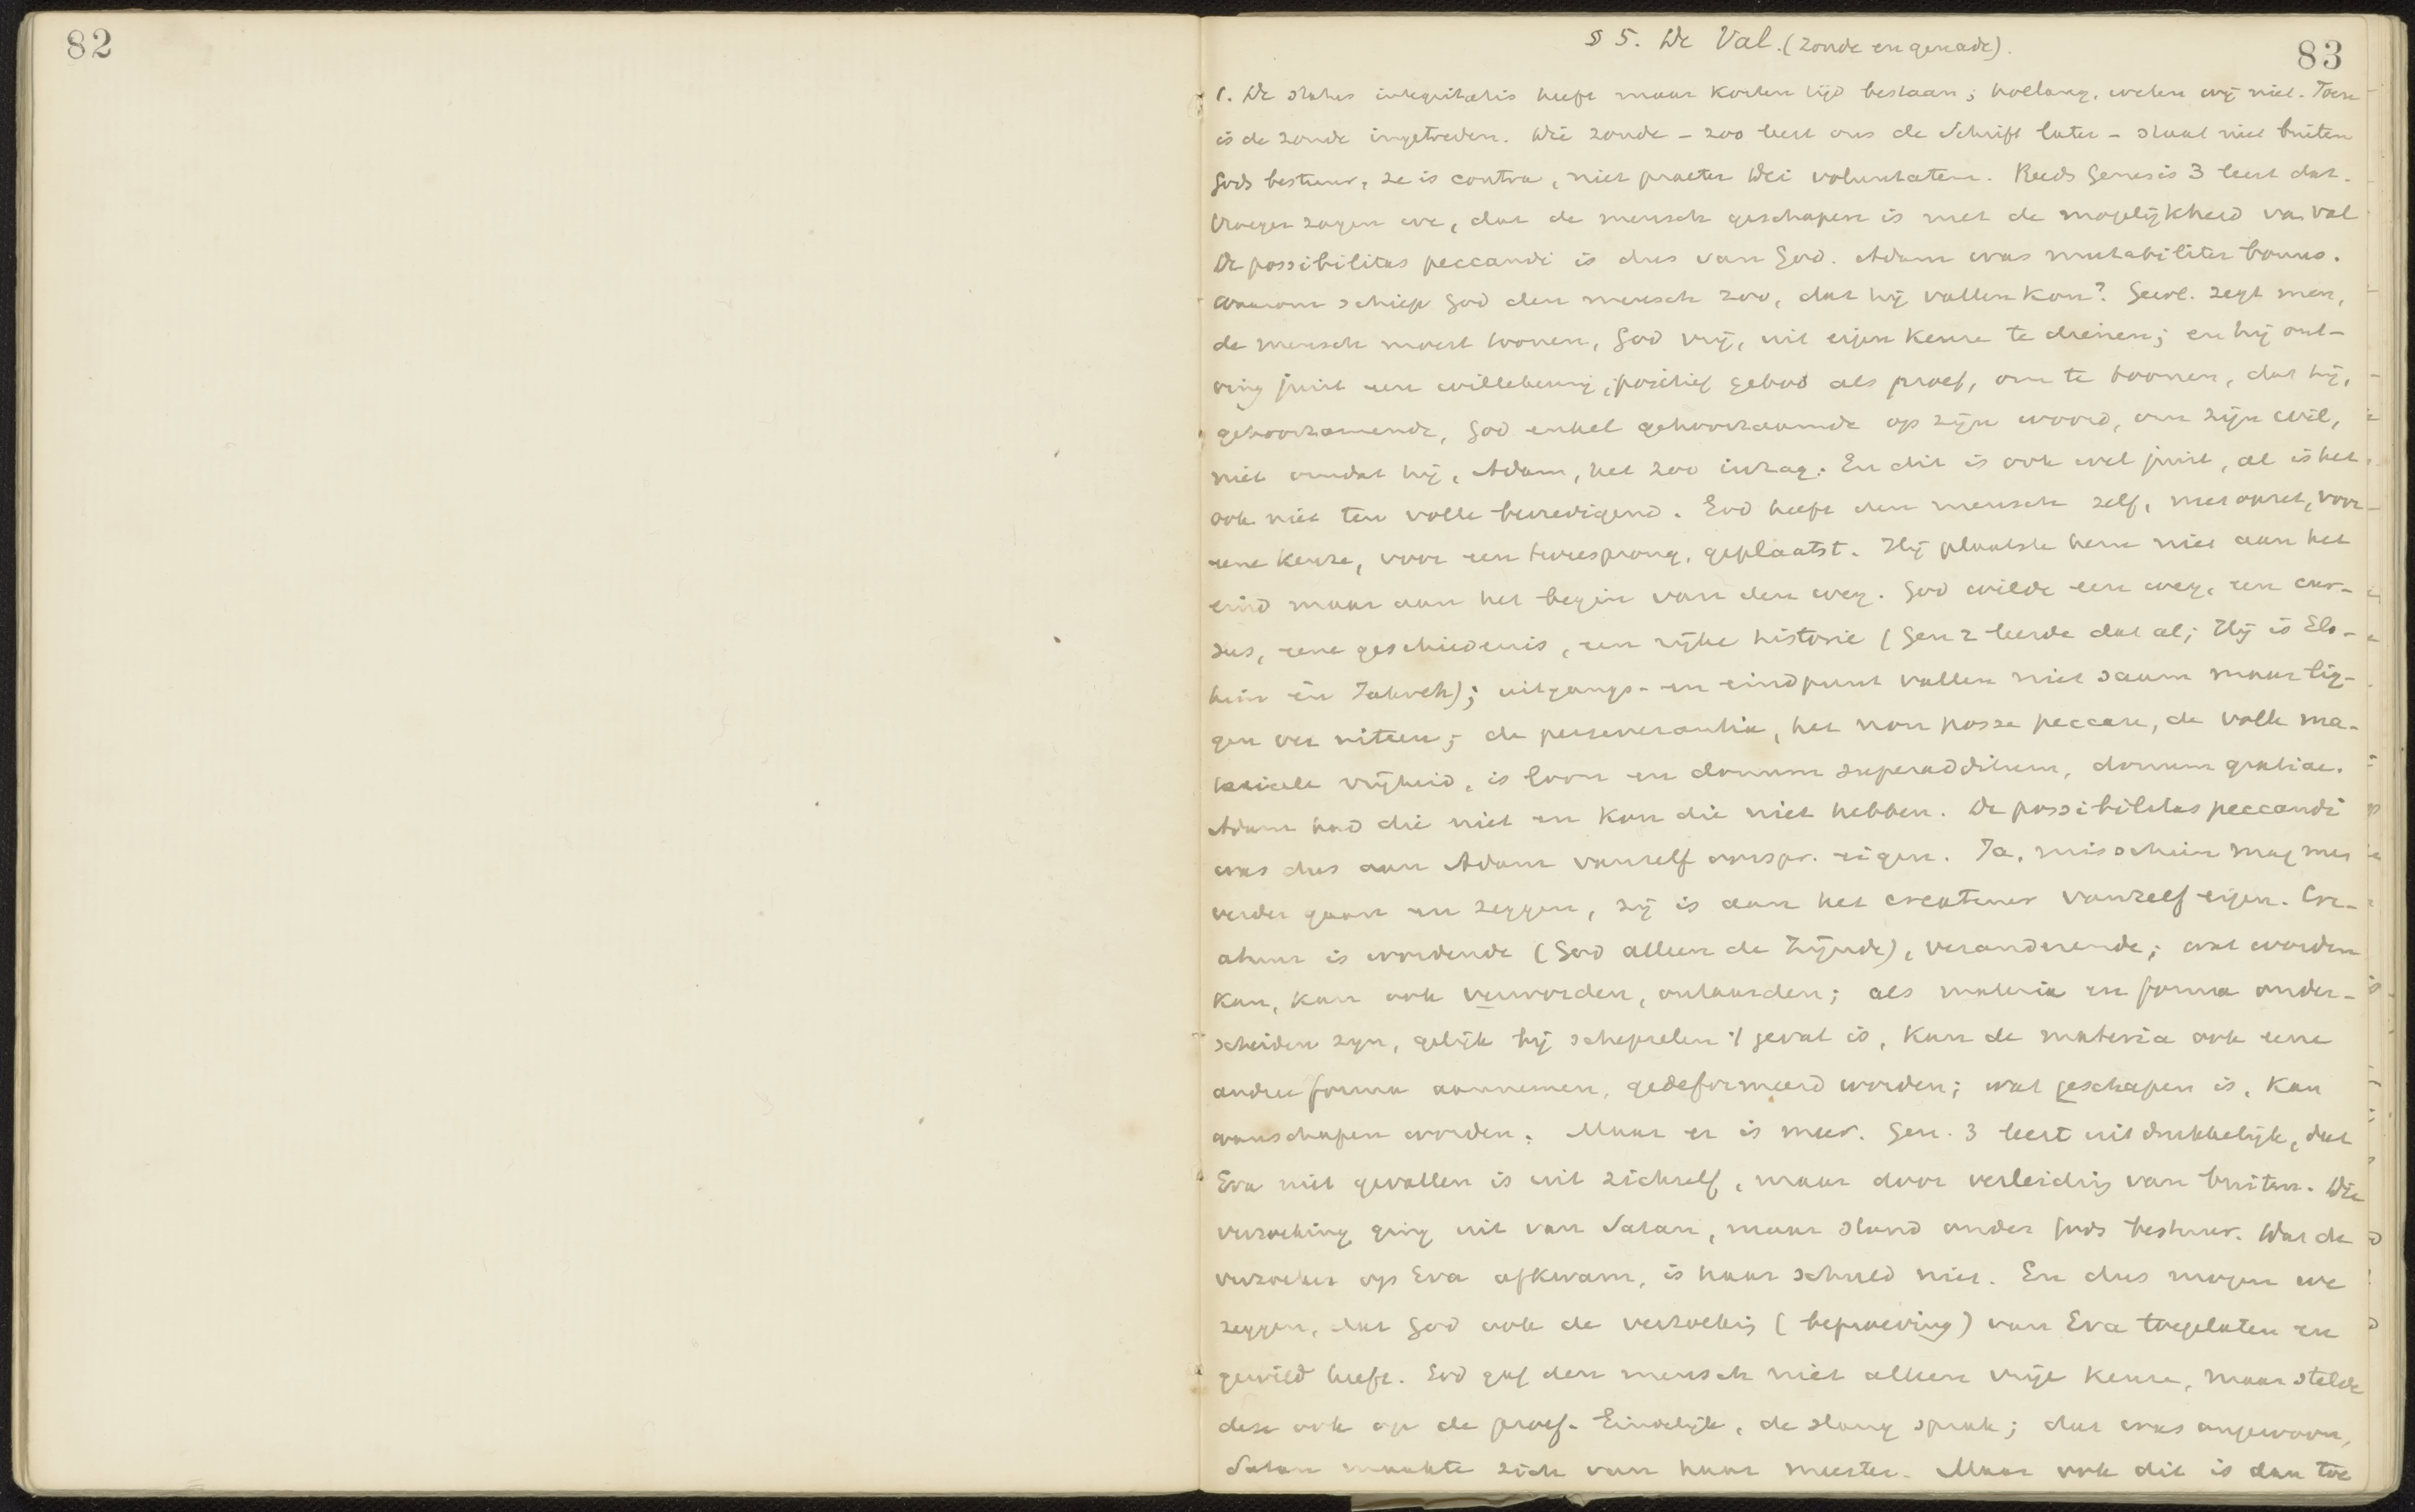 82
83
§ 5. De Val. (zonde en genade).
1. De status integritatis heeft maar korten tijd bestaan; hoelang, weten wij niet. Toen
is de zonde ingetreden. Die zonde - zoo leert ons de Schrift later - staat niet buiten
Gods bestuur, ze is contra, niet praeter Dei voluntatem. Reeds Genesis 3 leert dat.
Vroeger zagen we, dat de mensch geschapen is met de mogelijkheid van val
De possibilitas peccandi is dus van God. Adam was mutabiliter bonus.
Waarom schiep God den mensch zoo, dat hij vallen kon? Gewl. zegt men,
de mensch moest toonen, God vrij, uit eigen keuze te dienen; en hij ont-
ving juist een willekeurig, positief gebod als proef, om te toonen, dat hij,
gehoorzamende, God enkel gehoorzaamde op zijn woord, om zijn wil,
niet omdat hij, Adam, het zoo inzag. En dit is ook wel juist, al is het
ook niet ten volle bevredigend. God heeft den mensch zelf, met opzet, voor
eene keuze, voor een tweesprong, geplaatst. Hij plaatste hem niet aan het
eind maar aan het begin van den weg. God wilde een weg, een cur-
sus, eene geschiedenis, een rijke historie (Gen 2 leerde dat al; Hij is Elo-
him en Jahveh); uitgangs- en eindpunt vallen niet saam maar lig-
gen ver uiteen; de perseverantia, het non posse peccare, de volle ma-
terieele vrijheid, is loon en donum superadditum, donum gratiae.
Adam had die niet en kon die niet hebben. De possibilitas peccandi
was dus aan Adam vanzelf oorspr. eigen. Ja, misschien mag men
verder gaan en zeggen, zij is aan het creatuur vanzelf eigen. Cre-
atuur is wordende (God alleen de Zijnde), veranderende; wat worden
kan, kan ook verworden, ontaarden; als materia en forma onder-
scheiden zijn, gelijk bij schepselen 't geval is, kan de materia ook eene
andere forma aannemen, gedeformeerd worden; wat geschapen is, kan
wanschapen worden. Maar er is meer. Gen. 3 leert uitdrukkelijk, dat
Eva niet gevallen is uit zichzelf, maar door verleiding van buiten. Die
verzoeking ging uit van Satan, maar stond onder Gods bestuur. Dat de
verzoeker op Eva afkwam, is haar schuld niet. En dus mogen we
zeggen, dat God ook de verzoeking (beproeving) van Eva toegelaten en
gewild heeft. God gaf den mensch niet alleen vrije keuze, maar stelde
deze ook op de proef. Eindelijk, de slang sprak; dat was ongewoon,
Satan maakte zich van haar meester. Maar ook dit is dan toe